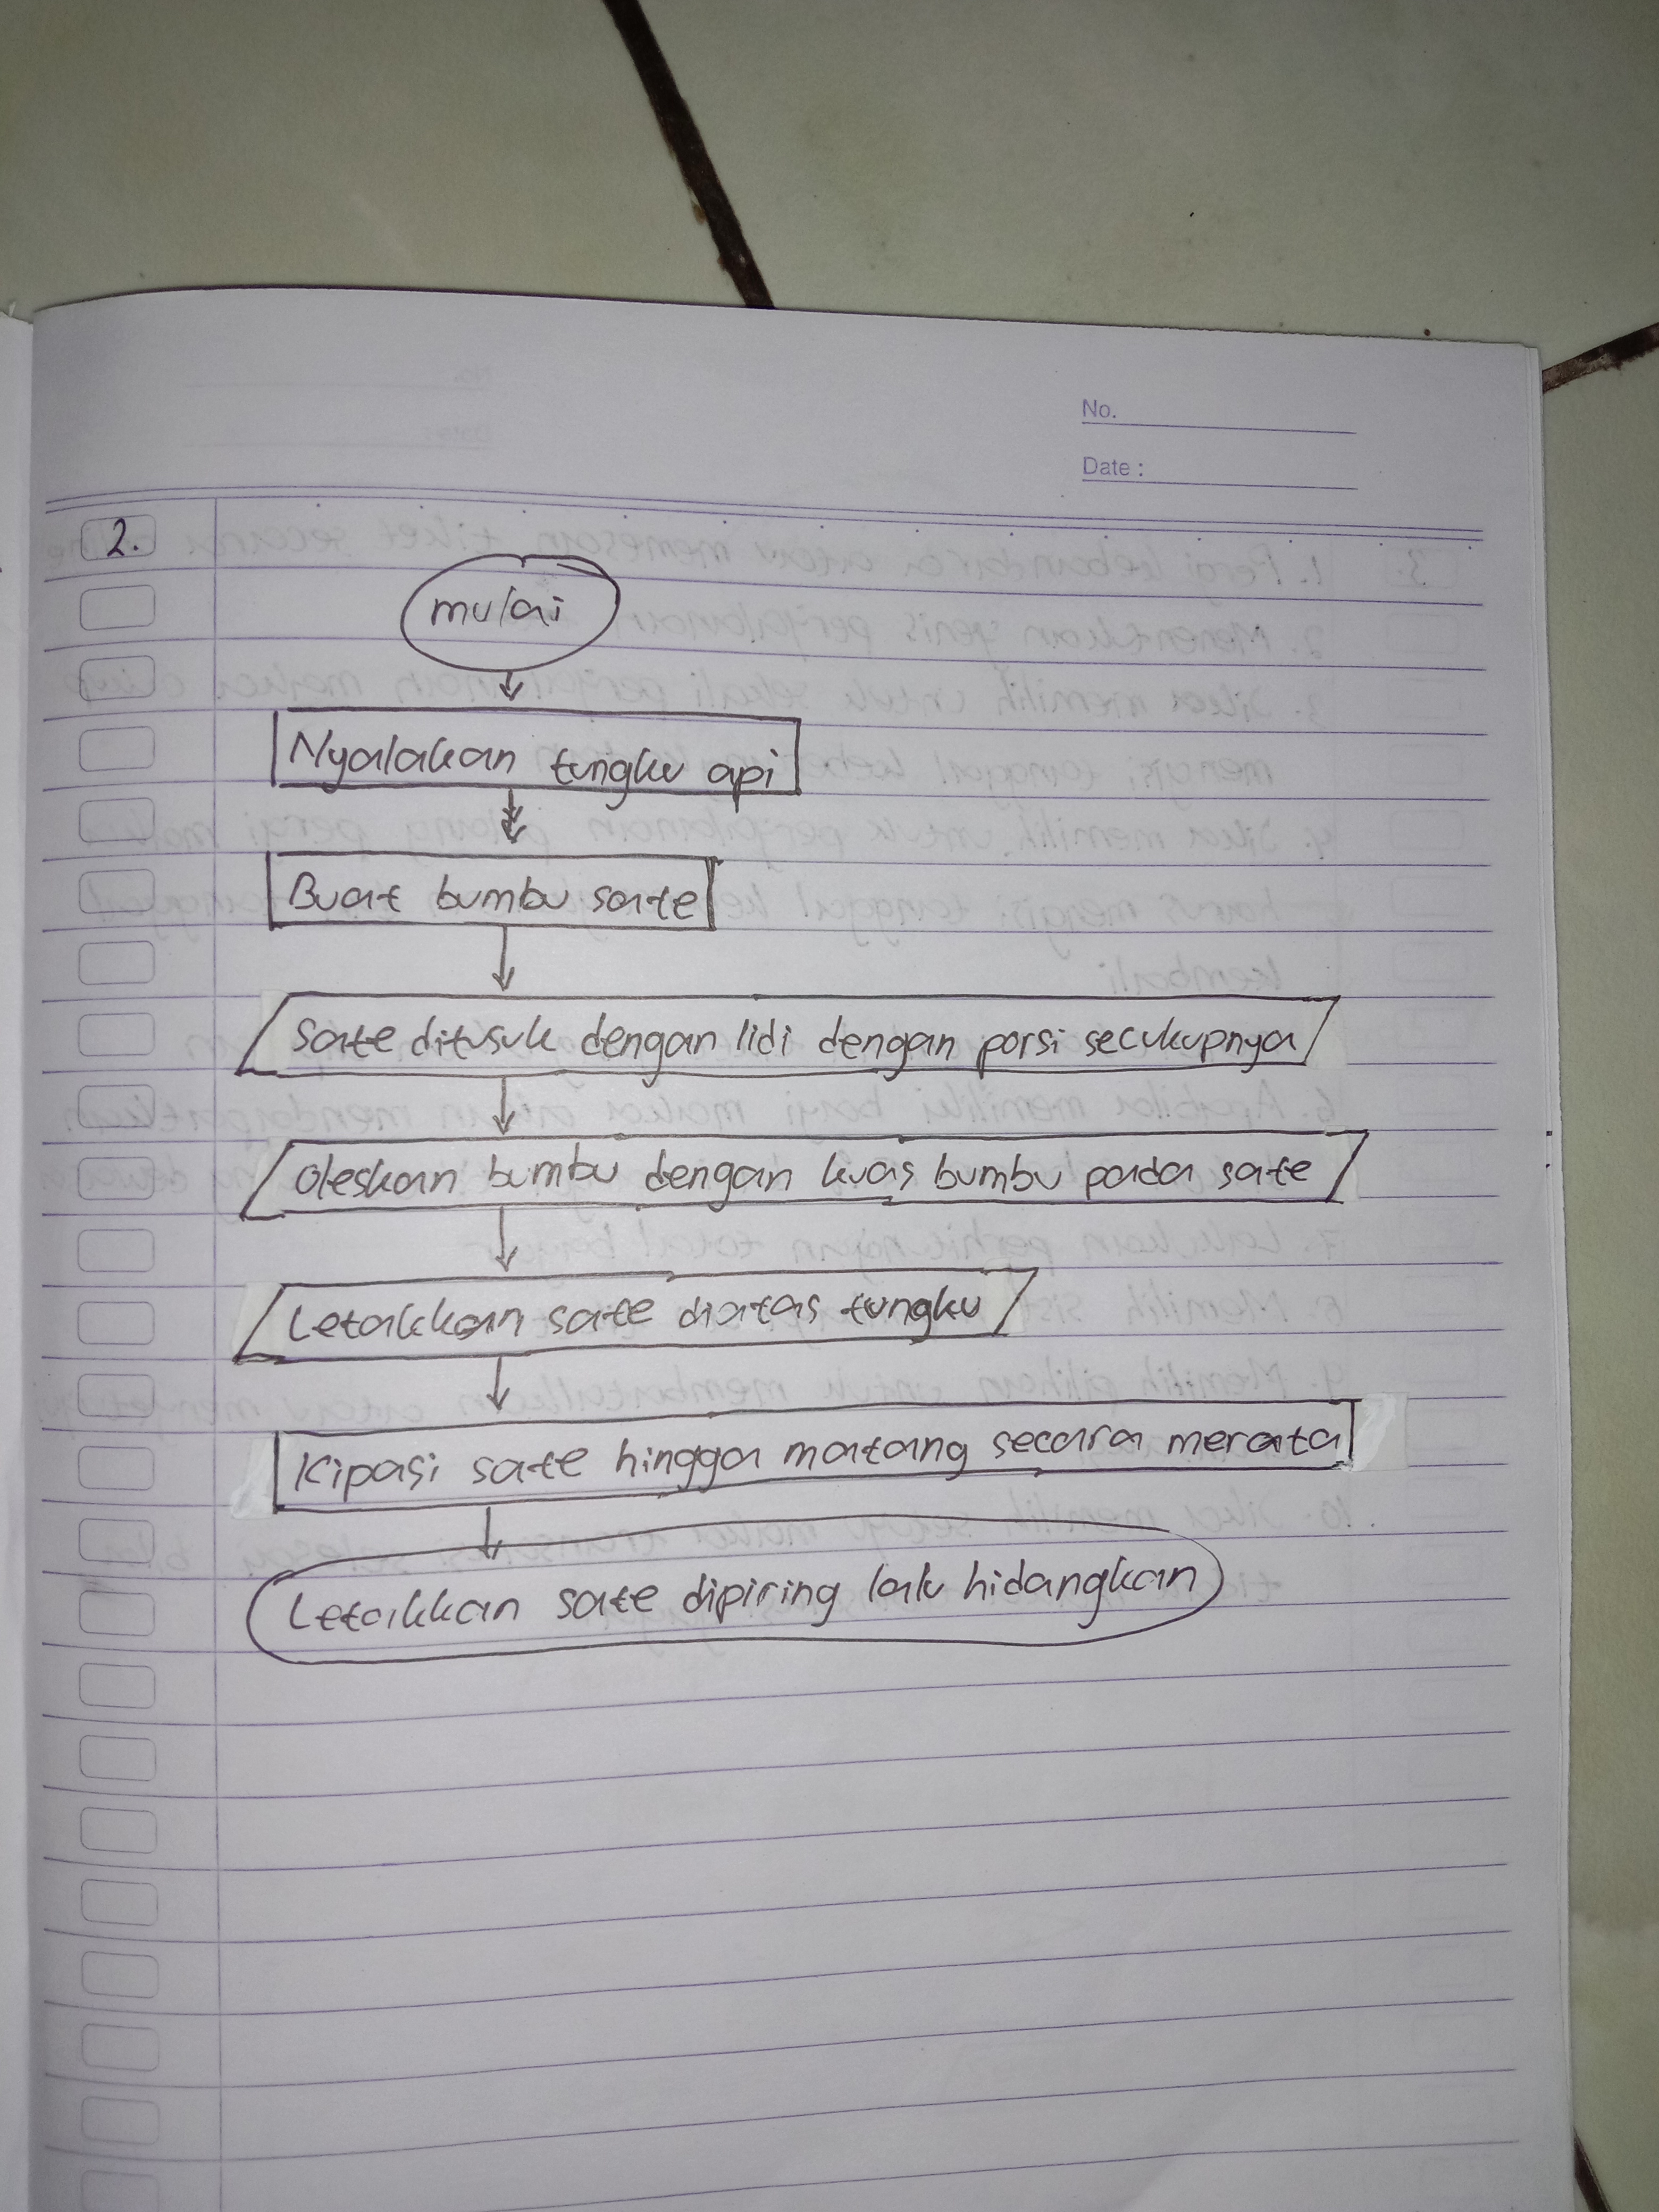 No.
Date :
2.
mulai
Nyalakan tungku api
Buat bumbu sate
Sate ditusuk dengan lidi dengan porsi secukupnya
Oleskan bumbu dengan kuas bumbu pada sate
Letakkan sate diatas tungku
Kipasi sate hingga matang secara merata
Letakkan sate dipiring lalu hidangkan